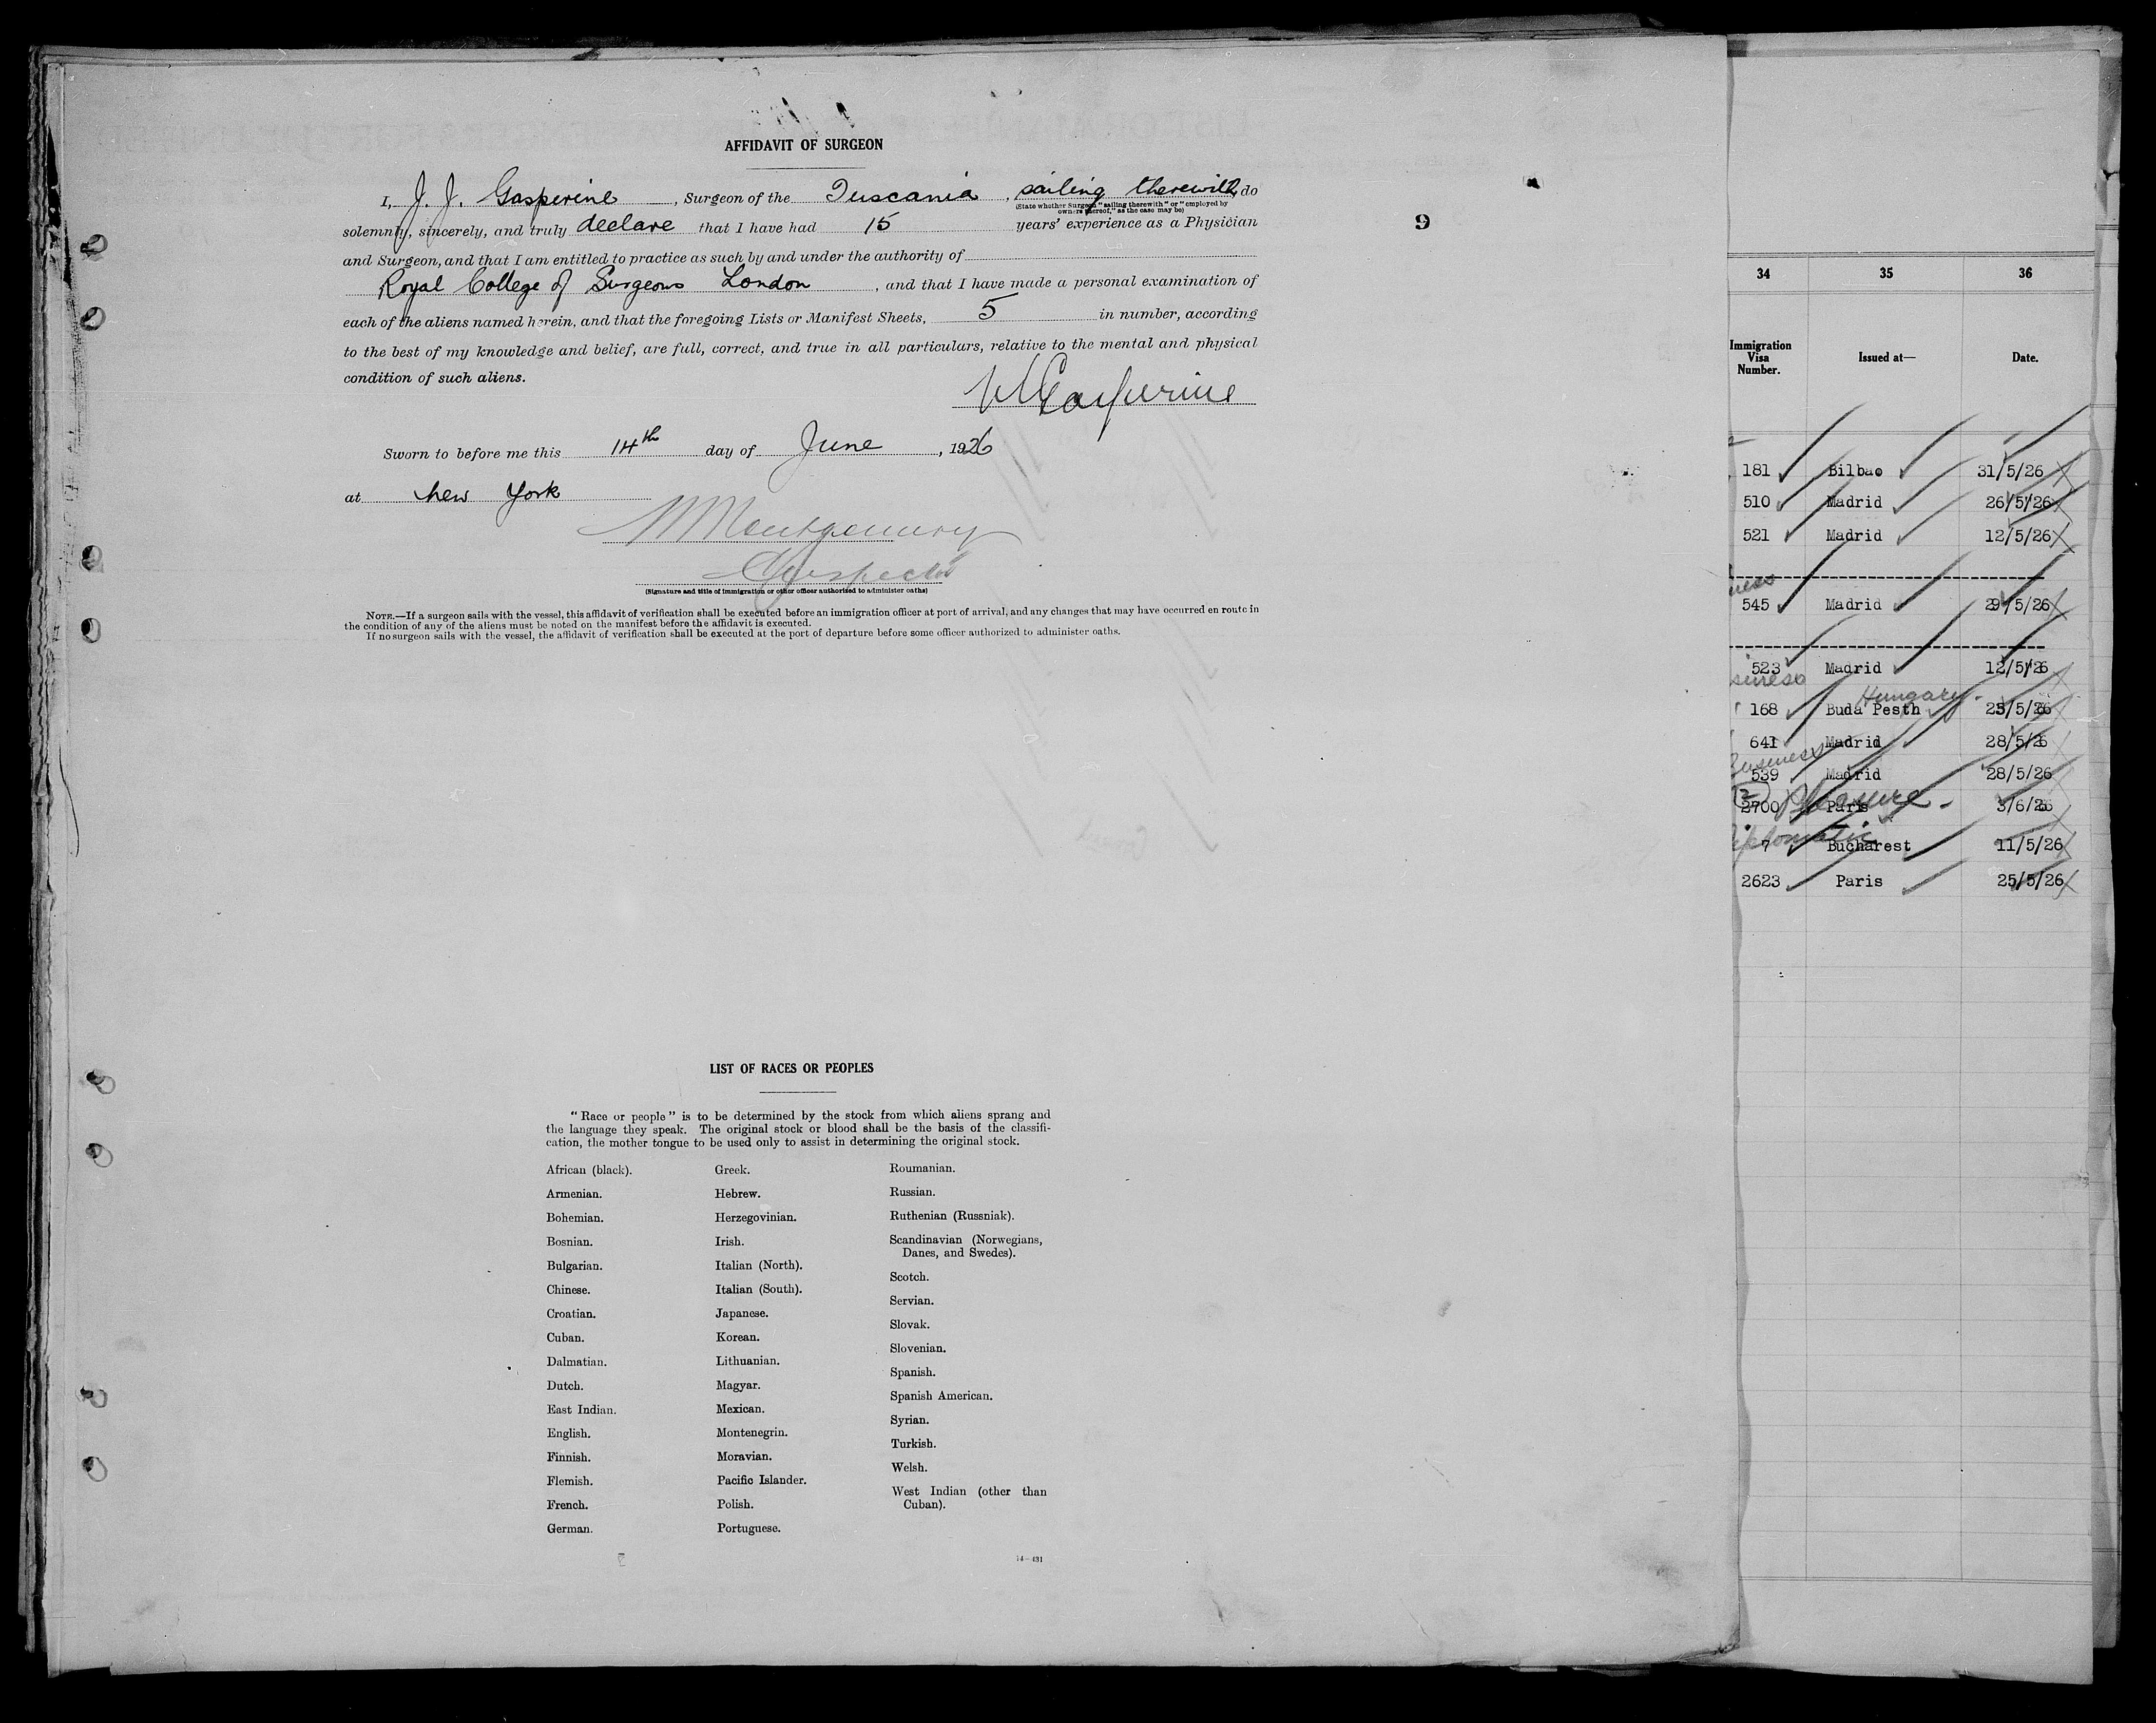 AFFIDAVIT OF SURGEON
I, J. J. Gasperine, Surgeon of the Tuscania, sailing therewith, do
(State whether Surgeon "sailing therewith" or "employed by
owners thereof," as the case may be)
solemnly, sincerely, and truly declare that I have had 15 years' experience as a Physician
and Surgeon, and that I am entitled to practice as such by and under the authority of
Royal College of Surgeons London, and that I have made a personal examination of
each of the aliens named herein, and that the foregoing Lists or Manifest Sheets, 5 in number, according
to the best of my knowledge and belief, are full, correct, and true in all particulars, relative to the mental and physical
condition of such aliens.
Gasperine
Sworn to before me this 14th day of June, 1926
at New York
Montgomery
Inspector
(Signature and title of immigration or other officer authorized to administer oaths)
NOTE.—If a surgeon sails with the vessel, this affidavit of verification shall be executed before an immigration officer at port of arrival, and any changes that may have occurred en route in
the condition of any of the aliens must be noted on the manifest before the affidavit is executed.
If no surgeon sails with the vessel, the affidavit of verification shall be executed at the port of departure before some officer authorized to administer oaths.
9
LIST OF RACES OR PEOPLES
"Race or people" is to be determined by the stock from which aliens sprang and
the language they speak. The original stock or blood shall be the basis of the classifi-
cation, the mother tongue to be used only to assist in determining the original stock.
African (black).
Armenian.
Bohemian.
Bosnian.
Bulgarian.
Chinese.
Croatian.
Cuban.
Dalmatian.
Dutch.
East Indian.
English.
Finnish.
Flemish.
French.
German.
Greek.
Hebrew.
Herzegovinian.
Irish.
Italian (North).
Italian (South).
Japanese.
Korean.
Lithuanian.
Magyar.
Mexican.
Montenegrin.
Moravian.
Pacific Islander.
Polish.
Portuguese.
Roumanian.
Russian.
Ruthenian (Russniak).
Scandinavian (Norwegians,
Danes, and Swedes).
Scotch.
Servian.
Slovak.
Slovenian.
Spanish.
Spanish American.
Syrian.
Turkish.
Welsh.
West Indian (other than
Cuban).
14—431
34 35 36
Immigration
Visa
Number.
Issued at—
Date.
181 Bilbao 31/5/26
510 Madrid 26/5/26
521 Madrid 12/5/26
545 Madrid 29/5/26
523 Madrid 12/5/26
Hungary.
168 Buda Pesth 25/5/26
641 Madrid 28/5/26
Business
539 Madrid 28/5/26
(2) Pleasure -
2700 Paris 3/6/26
7 Bucharest 11/5/26
2623 Paris 25/5/26